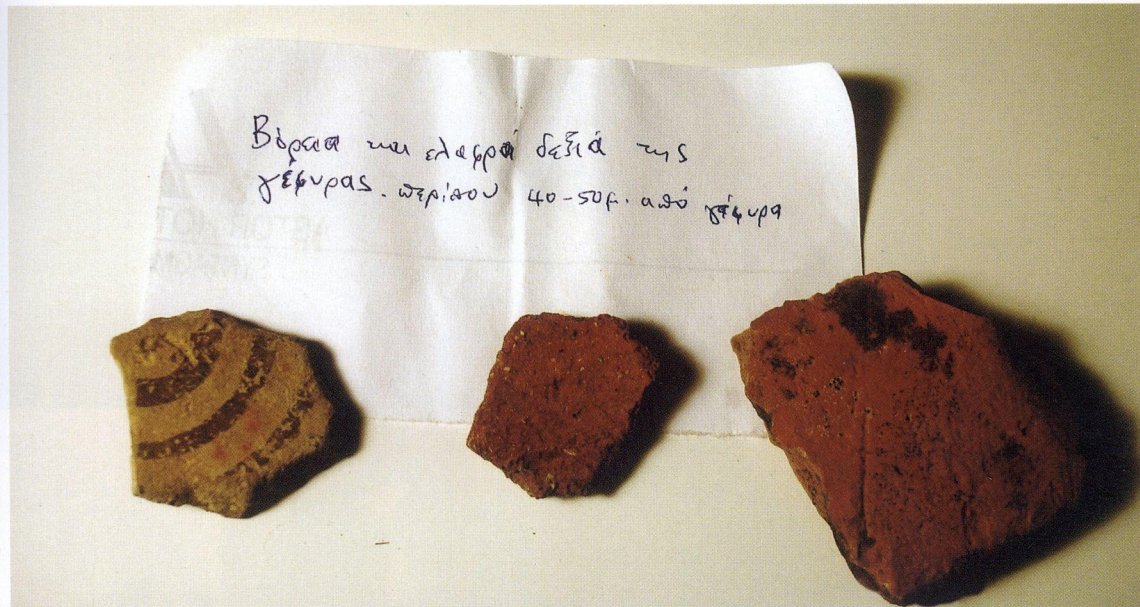 Βόρεια και ελαφρά δεξιά της
γέφυρας. περίπου 40-50μ. από γέφυρα